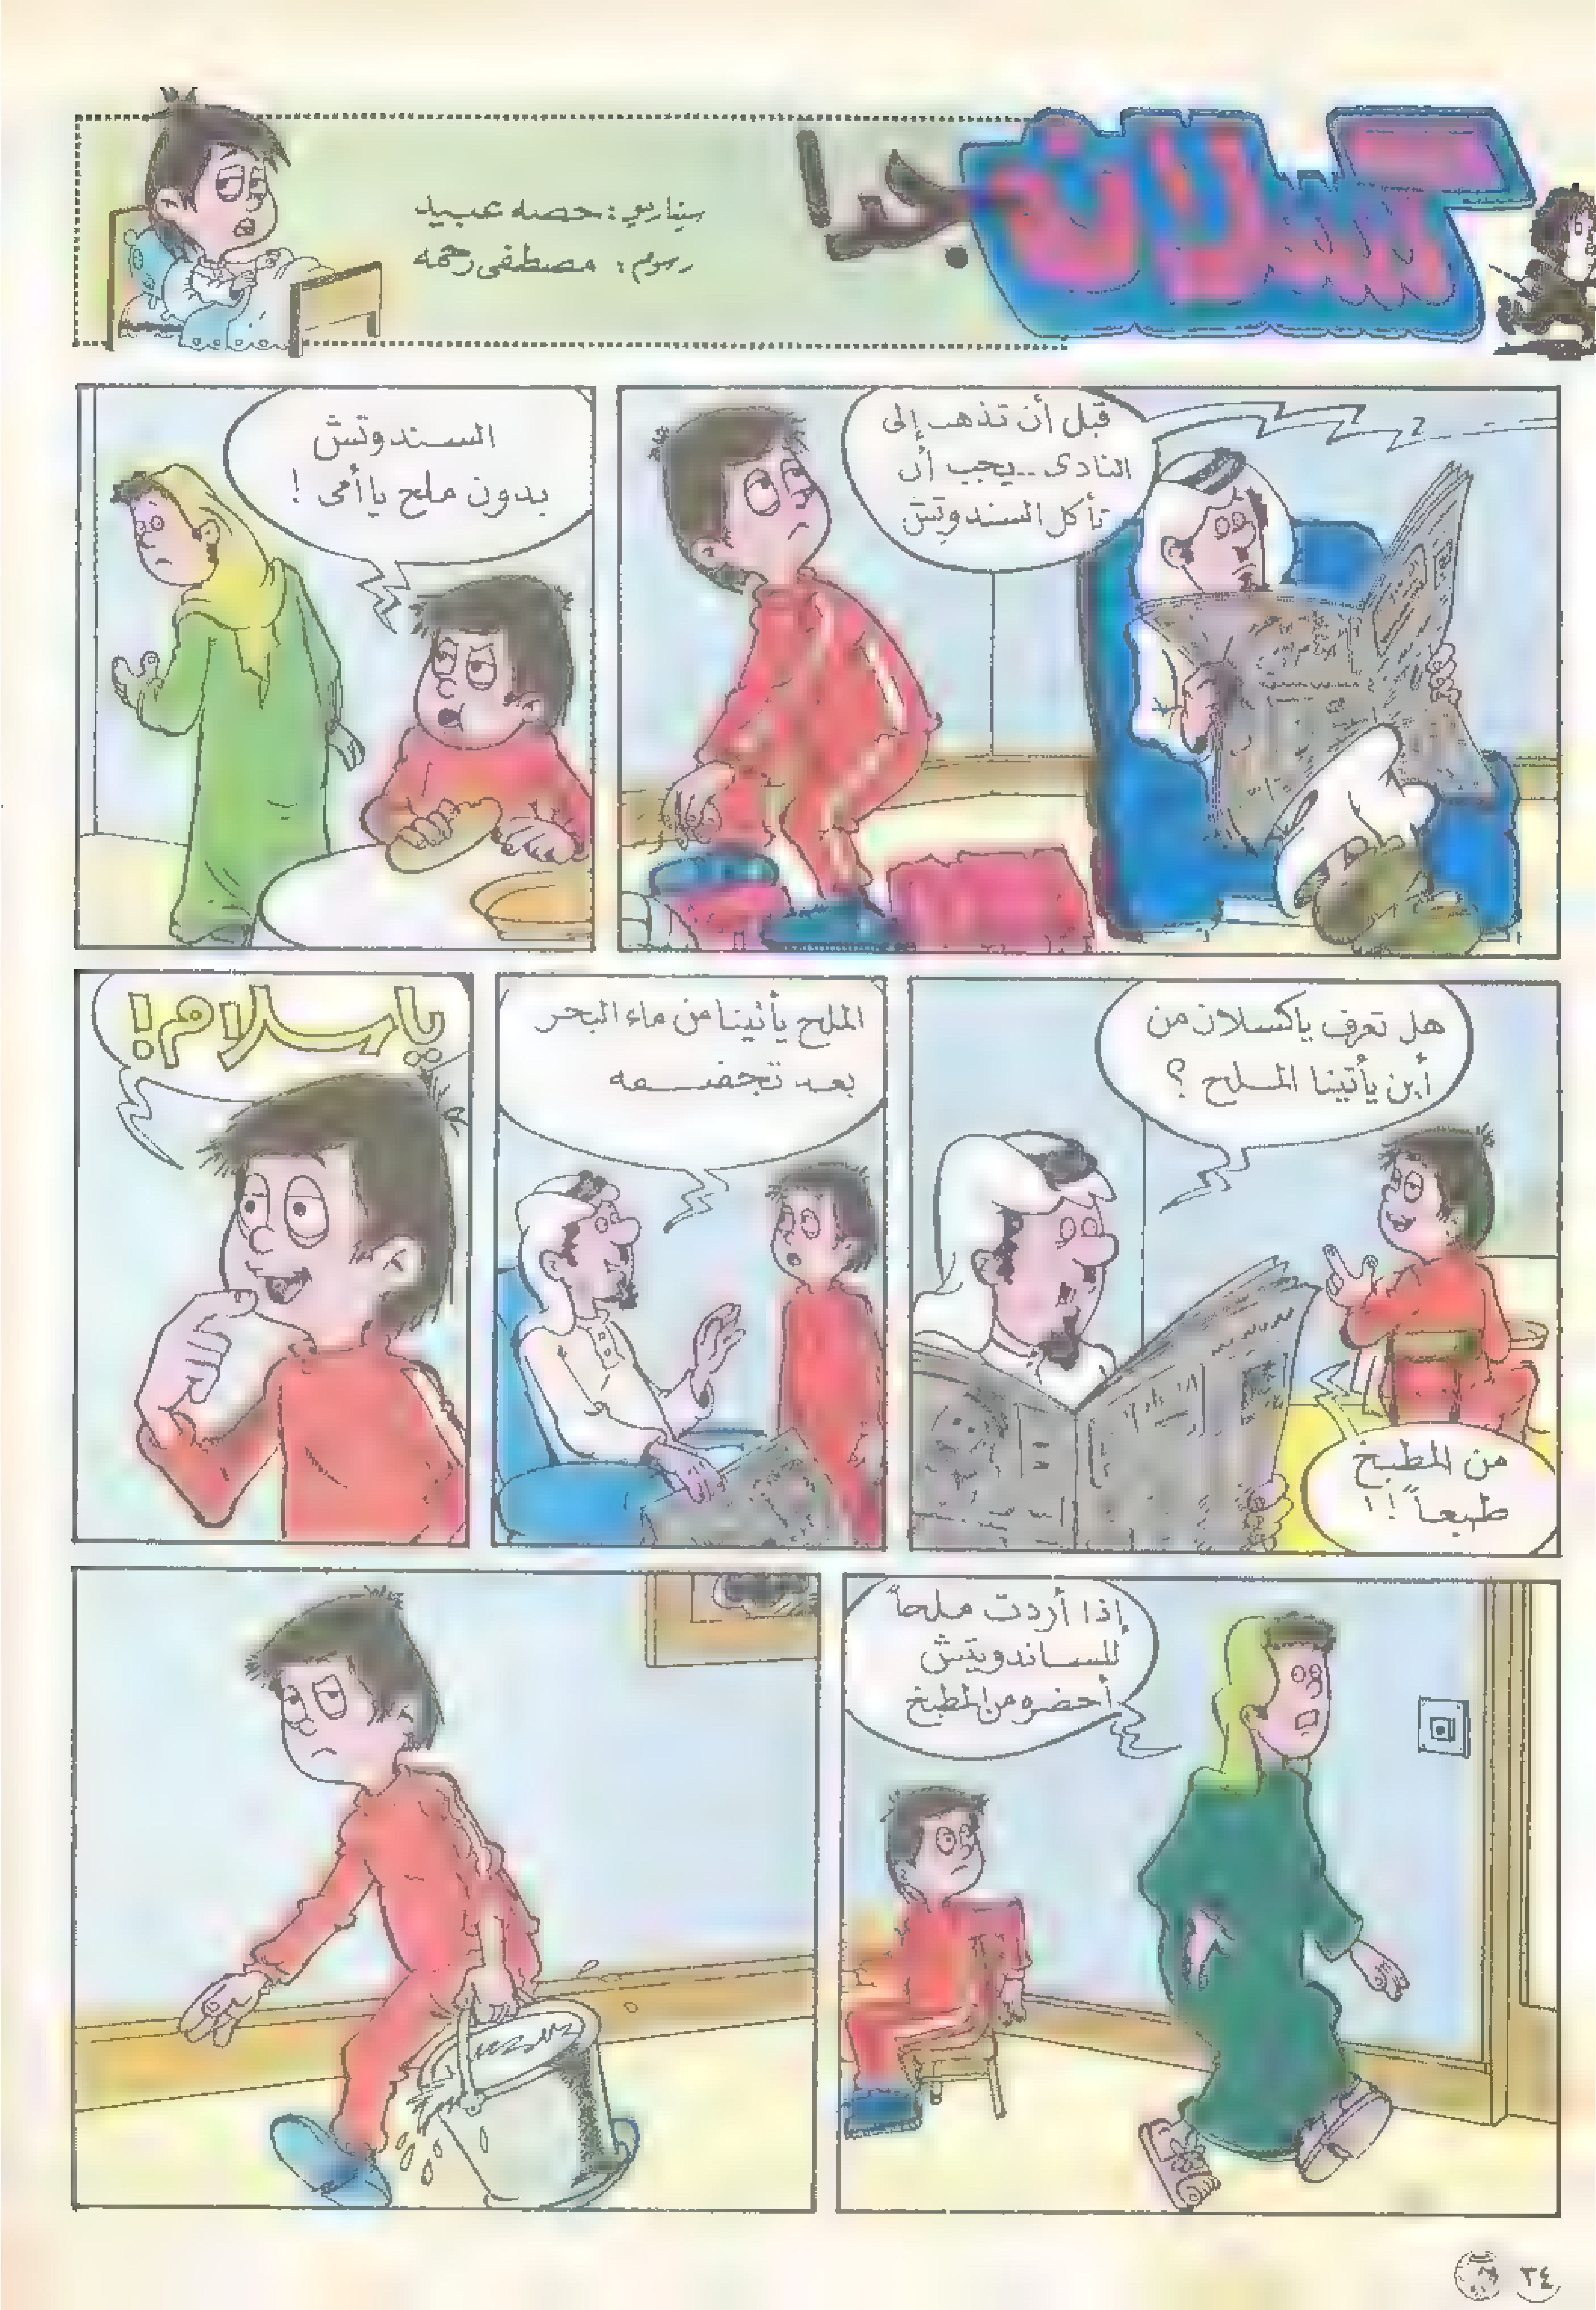 كسلان جدا
سيناريو: حصه عبيد
رسوم: مصطفى رحمه
قبل أن تذهب إلى
النادى .. يجب أن
تأكل السندوتش
السندوتش
بدون ملح يا أمى !
هل تعرف ياكسلان من
أين يأتينا الملح ؟
من المطبخ
طبعاً !!
الملح يأتينا من ماء البحر
بعد تجفيفه
ياسلام !
إذا أردت ملحاً
للساندويتش
أحضره من المطبخ
٣٤